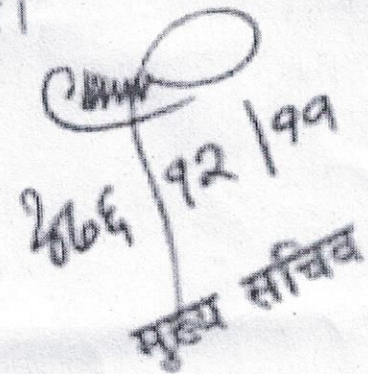 २०७६|१२|११
मुख्य सचिव